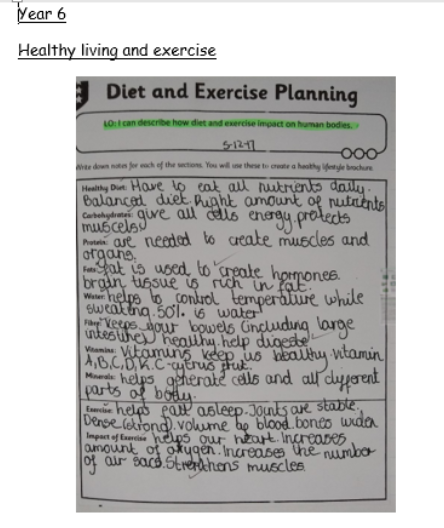 Year 6
Healthy living and exercise
Diet and Exercise Planning
LO: I can describe how diet and exercise impact on human bodies.
5-12-17
Write down notes for each of the sections. You will use these to create a healthy lifestyle brochure.
Healthy Diet: Have to eat all nutrients daily.
Balanced diet. Right amount of nutrients
Carbohydrates: give all cells energy. protects
muscels
Protein: are needed to create muscles and
organs.
Fats: fat is used to create hormones.
brain tissue is rich in fat.
Water: helps to control temperature while
sweating. 50% is water
Fibre: Keeps your bowels (including large
intestine) healthy. help digeste
Vitamins: Vitamins keep us healthy. vitamin
A,B,C,D,K. C-cytrus fruit.
Minerals: helps generate cells and all dyfferent
parts of body.
Exercise: helps fall asleep. Joints are stable.
Dense (strong). volume of blood. bones wider
Impact of Exercise helps our heart. Increases
amount of oxygen. Increases the number
of air sacs. Strenthens muscles.